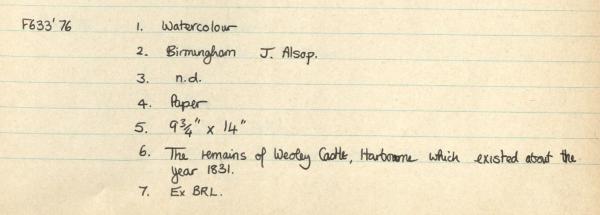 F633'76 1. Watercolour
2. Birmingham J. Alsop.
3. n.d.
4. Paper
5. 9¾" x 14"
6. The remains of Weoley Castle, Harborne which existed about the
year 1831.
7. Ex BRL.